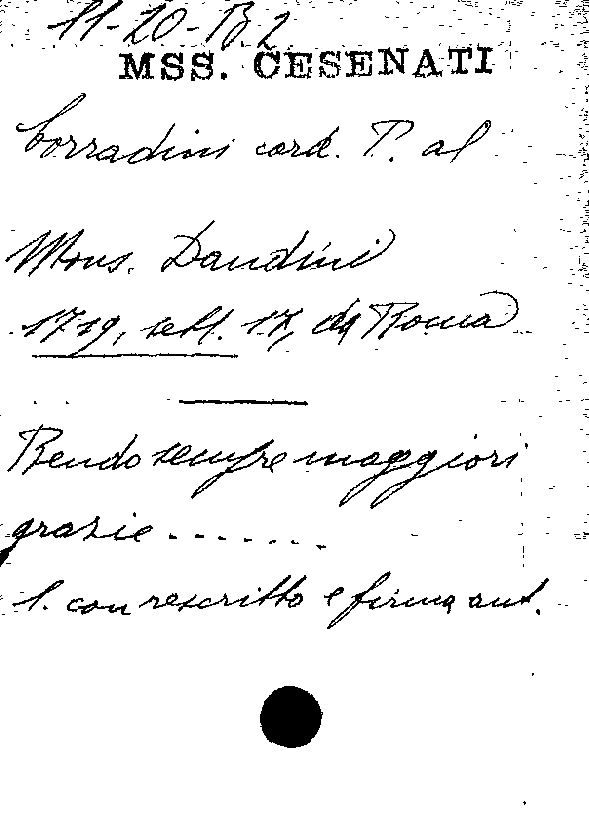 11-20-B2
MSS. CESENATI
Corradini card. P. al
Mons. Dandini
1719, sett. 17, da Roma
Rendo sempre maggiori
grazie .......
l. con rescritto e firma aut.